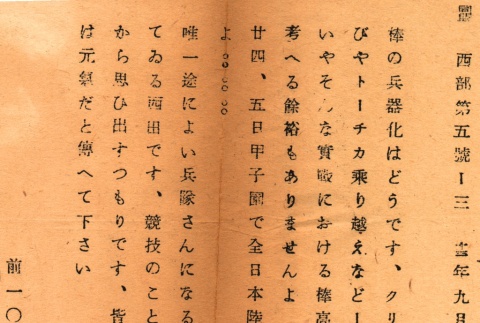 西部第五號ー三 年九日
棒の兵器化はどうです、クリ
びやトーチカ乘り越えなどー
いやそんな實戰における棒高
考へる餘裕もありませんよ
廿四、五日甲子園で全日本陸
よ。。。。
唯一途によい兵隊さんになる
てゐる西田です、競技のこと
から思ひ出すつもりです、皆
は元氣だと傳へて下さい
前一〇